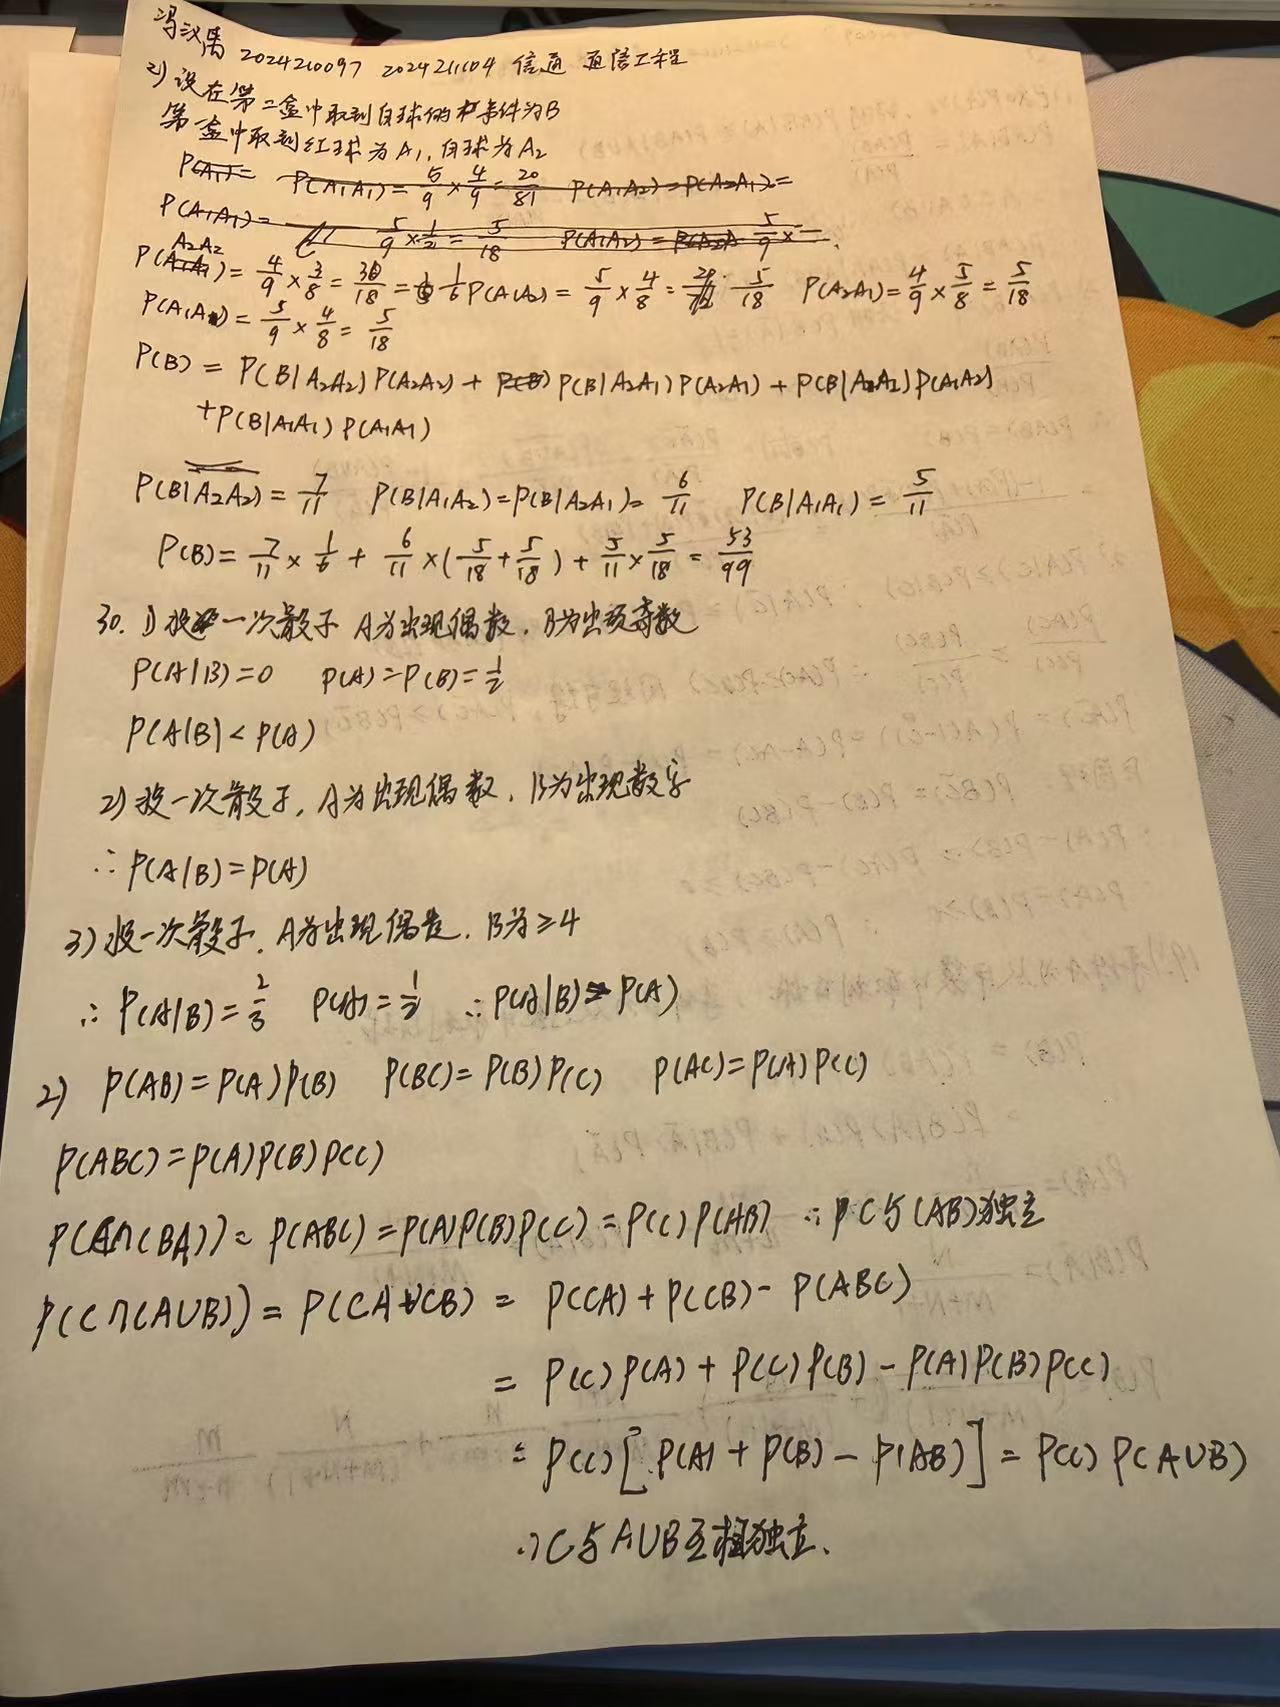 冯汉禹 2024210097 2024211104 信通 通信工程
2) 设在第二盒中取到白球的事件为B
第一盒中取到红球为A₁, 白球为A₂
P(A₁)= P(A₁A₁)=5/9×4/9=20/81 P(A₁A₂)=P(A₂A₁)=
P(A₁A₁)= 5/9×1/2=5/18 P(A₁A₂)= 5/9×
P(A₂A₂)=4/9×3/8=3/18=1/6 P(A₁A₂)=5/9×4/8=5/18 P(A₂A₁)=4/9×5/8=5/18
P(A₁A₁)=5/9×4/8=5/18
P(B)=P(B|A₂A₂)P(A₂A₂)+P(B|A₂A₁)P(A₂A₁)+P(B|A₁A₂)P(A₁A₂)
+P(B|A₁A₁)P(A₁A₁)
P(B|A₂A₂)=7/11 P(B|A₁A₂)=P(B|A₂A₁)=6/11 P(B|A₁A₁)=5/11
P(B)=7/11×1/6+6/11×(5/18+5/18)+5/11×5/18=53/99
30. 1) 投一次骰子 A为出现偶数, B为出现奇数
P(A|B)=0 P(A)=P(B)=1/2
P(A|B)<P(A)
2) 投一次骰子, A为出现偶数, B为出现数字
∴P(A|B)=P(A)
3) 投一次骰子, A为出现偶数, B为≥4
∴P(A|B)=2/3 P(A)=1/2 ∴P(A|B)>P(A)
2) P(AB)=P(A)P(B) P(BC)=P(B)P(C) P(AC)=P(A)P(C)
P(ABC)=P(A)P(B)P(C)
P(C∩(BA))=P(ABC)=P(A)P(B)P(C)=P(C)P(AB) ∴C与(AB)独立
P(C∩(A∪B))=P(CA∪CB)=P(CA)+P(CB)-P(ABC)
=P(C)P(A)+P(C)P(B)-P(A)P(B)P(C)
=P(C)[P(A)+P(B)-P(AB)]=P(C)P(A∪B)
∴C与A∪B互相独立.